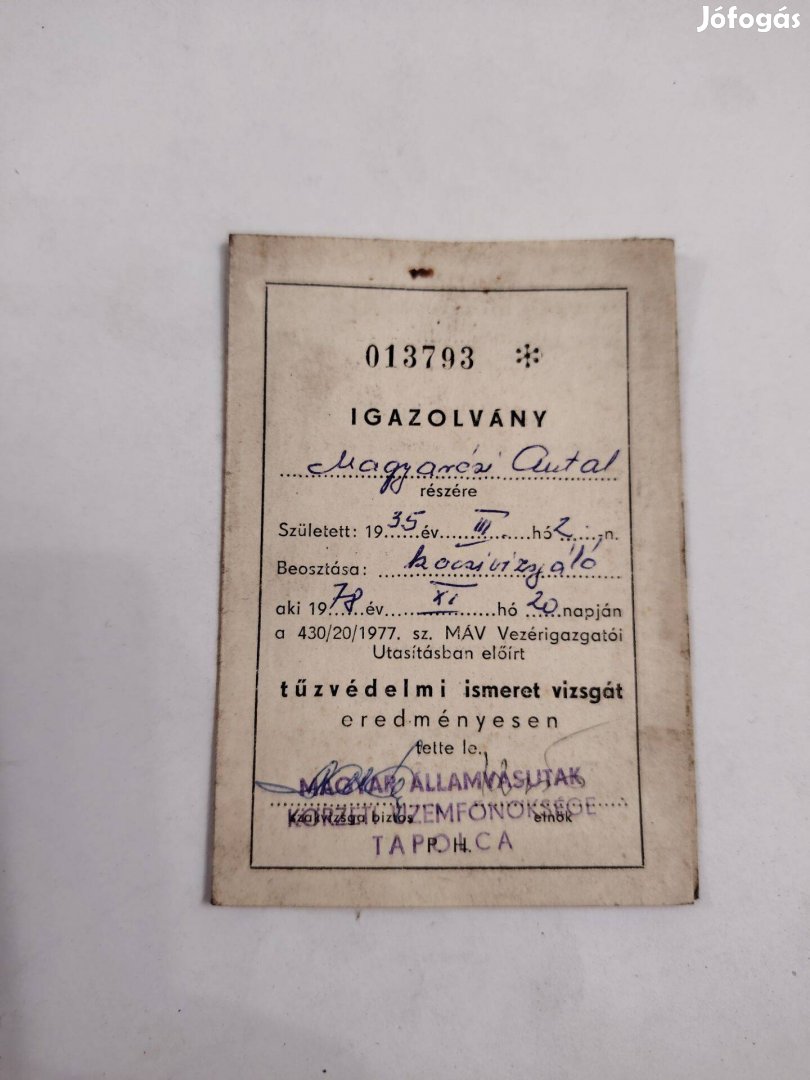 Jófogás
013793 *
IGAZOLVÁNY
Magyarósi Antal
részére
Született: 1935 év III hó 2 -n.
Beosztása: kocsivizsgáló
aki 1978 év XI. hó 20 napján
a 430/20/1977. sz. MÁV Vezérigazgatói
Utasításban előírt
tűzvédelmi ismeret vizsgát
eredményesen
tette le.
MAGYAR ÁLLAMVASUTAK
KÖRZETI ÜZEMFŐNÖKSÉGE
szakvizsga biztos elnök
TAPOLCA
P. H.